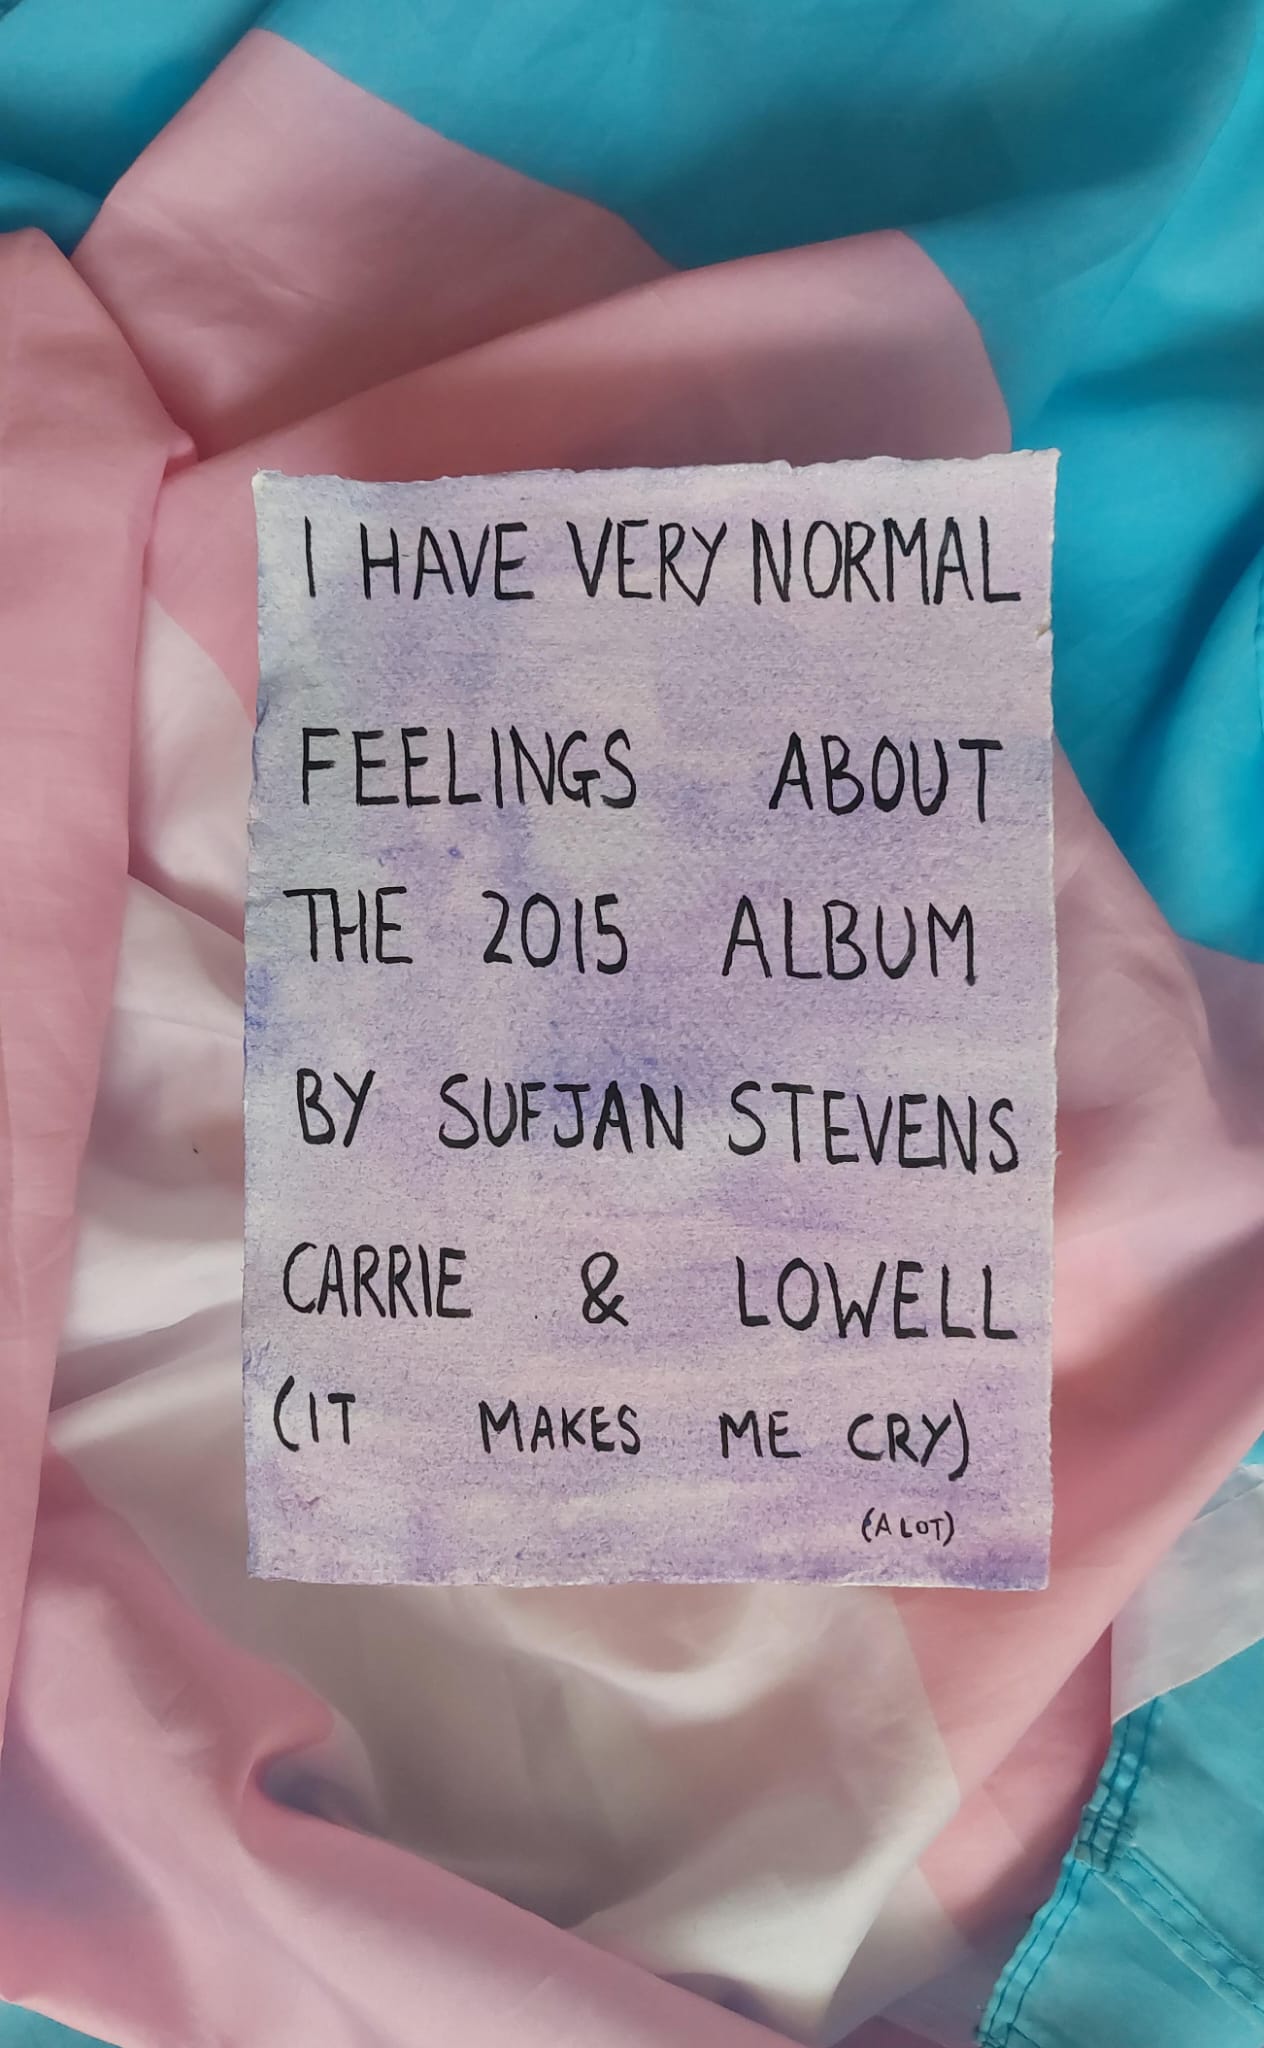 I HAVE VERY NORMAL
FEELINGS ABOUT
THE 2015 ALBUM
BY SUFJAN STEVENS
CARRIE & LOWELL
(IT MAKES ME CRY)
(A LOT)